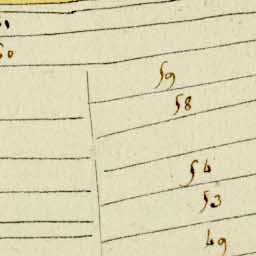 60
59
58
54
53
49